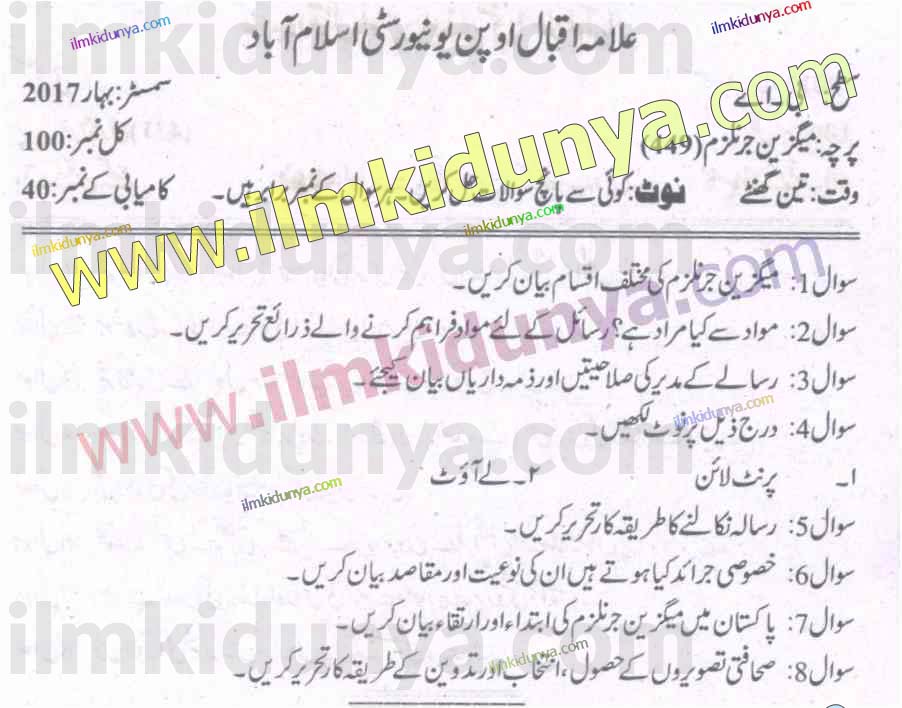 علامہ اقبال اوپن یونیورسٹی اسلام آباد
سطح: بی۔اے سمسٹر: بہار 2017
پرچہ: میگزین جرنلزم (449) کل نمبر: 100
وقت: تین گھنٹے نوٹ: کوئی سے پانچ سوالات حل کریں۔ ہر سوال کے نمبر برابر ہیں۔ کامیابی کے نمبر: 40
سوال 1: میگزین جرنلزم کی مختلف اقسام بیان کریں۔
سوال 2: مواد سے کیا مراد ہے؟ رسائل کے لئے مواد فراہم کرنے والے ذرائع تحریر کریں۔
سوال 3: رسالے کے مدیر کی صلاحیتیں اور ذمہ داریاں بیان کیجئے۔
سوال 4: درج ذیل پر نوٹ لکھیں۔
ا۔ پرنٹ لائن ۲۔ لے آؤٹ
سوال 5: رسالہ نکالنے کا طریقہ کار تحریر کریں۔
سوال 6: خصوصی جرائد کیا ہوتے ہیں ان کی نوعیت اور مقاصد بیان کریں۔
سوال 7: پاکستان میں میگزین جرنلزم کی ابتداء اور ارتقاء بیان کریں۔
سوال 8: صحافتی تصویروں کے حصول، انتخاب اور تدوین کے طریقہ کار تحریر کریں۔
www.ilmkidunya.com
www.ilmkidunya.com
ilmkidunya.com
ilmkidunya.com
ilmkidunya.com
ilmkidunya.com
ilmkidunya.com
ilmkidunya.com
ilmkidunya.com
ilmkidunya.com
ilmkidunya.com
ilmkidunya.com
ilmkidunya.com